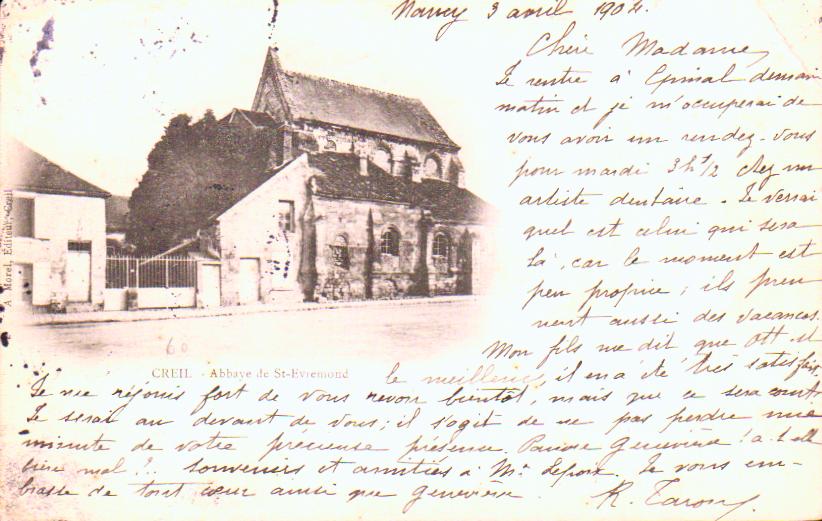 Nancy 3 avril 1904.
Chère Madame,
Je rentre à Epinal demain
matin et je m'occuperai de
vous avoir un rendez-vous
pour mardi 3h 1/2 chez un
artiste dentaire. Je verrai
quel est celui qui sera
là, car le moment est
peu propice; ils pren
nent aussi des vacances.
Mon fils me dit que Ott est
le meilleur, il en a été très satisfait.
Je me réjouis fort de vous revoir bientôt, mais que ce sera court
Je serai au devant de vous; il s'agit de ne pas perdre une
minute de votre précieuse présence. Pauvre Geneviève! a-t-elle
bien mal?. Souvenirs et amitiés à Mr
Je vous em-
brasse de tout cœur ainsi que Geneviève.
A Morel, Editeur, Creil
60
CREIL - Abbaye de St-Evremond